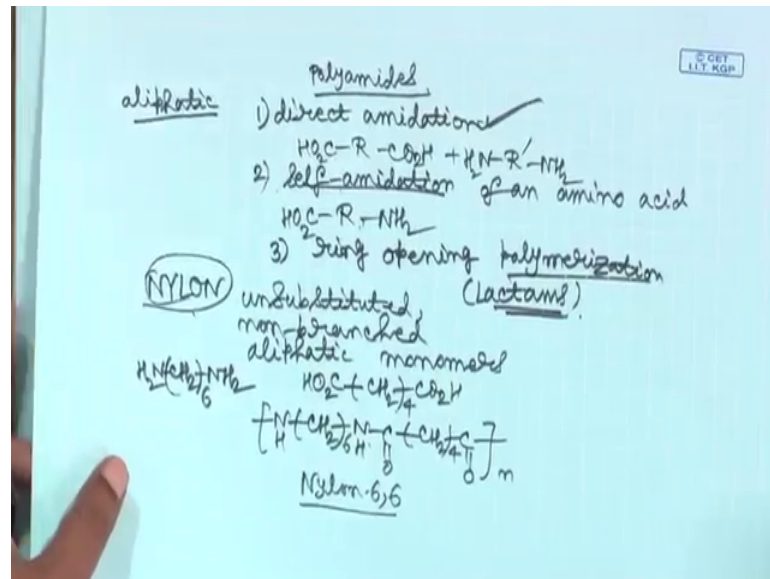 © CET
I.I.T. KGP
polyamides
aliphatic
1) direct amidation
HO₂C-R-CO₂H + H₂N-R'-NH₂
2) Self-amidation of an amino acid
HO₂C-R-NH₂
3) ring opening polymerization
(Lactams).
NYLON
unsubstituted,
non-branched
aliphatic monomers
H₂N(CH₂)₆NH₂ HO₂C-(CH₂)₄CO₂H
[-N-(CH₂)₆-N-C-(CH₂)₄-C-]n
H H O O
Nylon-6,6